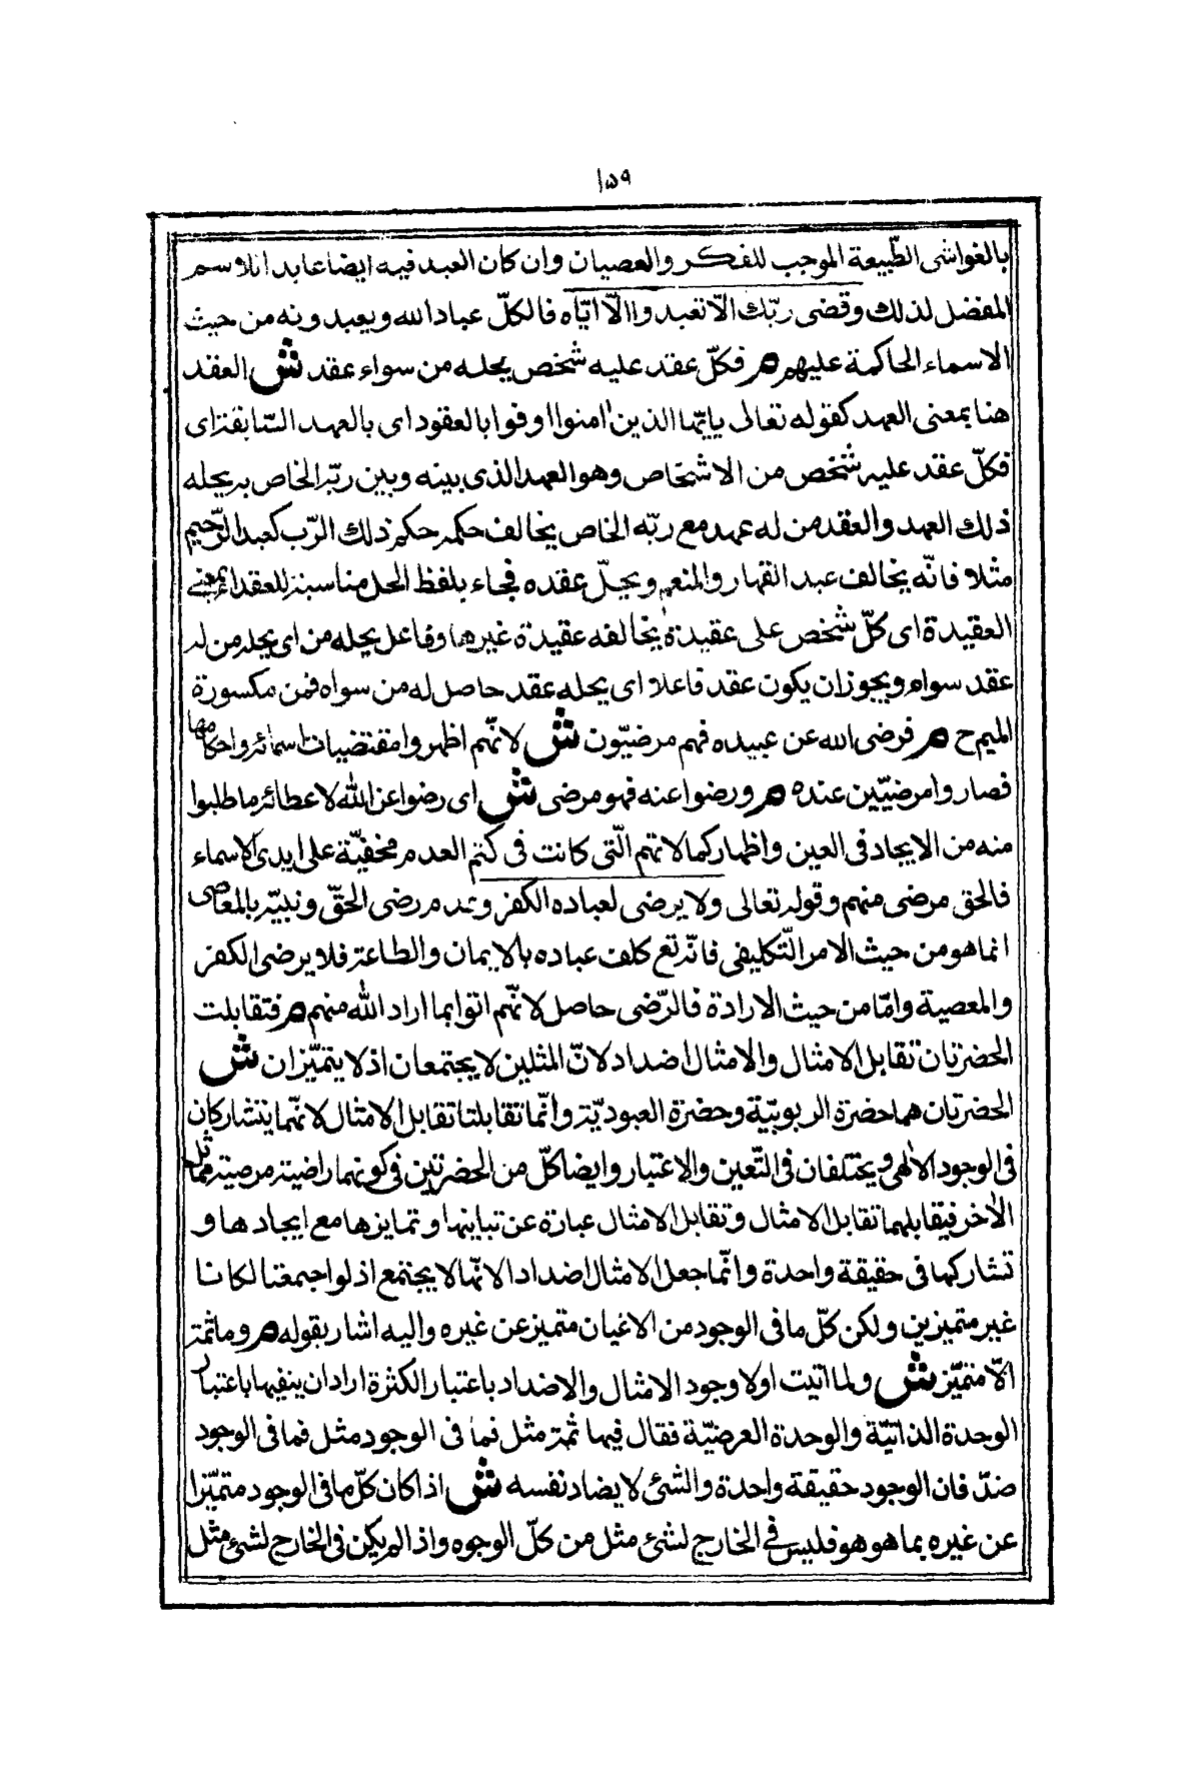 ١٥٩
بالغواشى الطّبيعة الموجب للفكر والعصيان وان كان العبد فيه ايضا عابدا للاسم
المفضل لذلك وقضى ربّك الّا تعبدوا الّا ايّاه فالكلّ عباد الله ويعبدونه من حيث
الاسماء الحاكمة عليهم م فكلّ عقد عليه شخص يحله من سواء عقد ش العقد
هنا بمعنى العهد كقوله تعالى ياايّها الذين امنوا اوفوا بالعقود اى بالعهد السّابقة اى
فكلّ عقد عليه شخص من الاشخاص وهو العهد الذى بينه وبين ربّه الخاص به يحله
ذلك العهد والعقد من له عهد مع ربّه الخاص يخالف حكمه حكم ذلك الرّب كعبد الرّحيم
مثلا فانّه يخالف عبد القهار والمنعم ويحلّ عقده فجاء بلفظ الحل مناسبة للعقد او بمعنى
العقيدة اى كلّ شخص على عقيدة يخالفه عقيدة غيرها وفاعل يحله من اى يحله من له
عقد سواه ويجوز ان يكون عقد فاعلا اى يحله عقد حاصل له من سواه فمن مكسورة
الميم ح م فرضى الله عن عبيده فهم مرضيّون ش لانّهم اظهروا مقتضيات اسمائه واحكامها
فصاروا مرضيّين عنده م ورضوا عنه فهو مرضى ش اى رضوا عن الله لاعطائه ما طلبوا
منه من الايجاد فى العين واظهار كمالاتهم الّتى كانت فى كتم العدم مخفيّة على ايدى الاسماء
فالحق مرضى منهم وقوله تعالى ولا يرضى لعباده الكفر وعدم رضى الحقّ ونبيّه بالمعاصى
انما هو من حيث الامر التّكليفى فانّه تع كلف عباده بالايمان والطاعة فلا يرضى الكفر
والمعصية وامّا من حيث الارادة فالرّضى حاصل لانّهم اتوا بما اراد الله منهم م فتقابلت
الحضرتان تقابل الامثال والامثال اضداد لانّ المثلين لا يجتمعان اذ لا يتميّزان ش
الحضرتان هما حضرة الربوبيّة وحضرة العبوديّة وانّما تقابلتا تقابل الامثال لانّهما يتشاركان
فى الوجود الالهى ويختلفان فى التّعين والاعتبار وايضا كلّ من الحضرتين فى كونهما راضية مرضية مماثل
الآخر فيقابلهما تقابل الامثال وتقابل الامثال عبارة عن تباينها وتمايزها مع ايجادها و
تشاركها فى حقيقة واحدة وانّما جعل الامثال اضدادا لانّها لا يجتمع اذ لو اجتمعتا لكانا
غير متميزين ولكن كلّ ما فى الوجود من الاعيان متميز عن غيره واليه اشار بقوله م وما ثمة
الّا متميّز ش ولما اثبت اولا وجود الامثال والاضداد باعتبار الكثرة اراد ان ينفيها باعتبار
الوحدة الذاتيّة والوحدة العرضيّة فقال فيها ثمّة مثل فما فى الوجود مثل فما فى الوجود
ضدّ فان الوجود حقيقة واحدة والشئ لا يضاد نفسه ش اذا كان كلّ ما فى الوجود متميّزا
عن غيره بما هو هو فليس فى الخارج لشئ مثل من كلّ الوجوه واذا لم يكن فى الخارج لشئ مثل